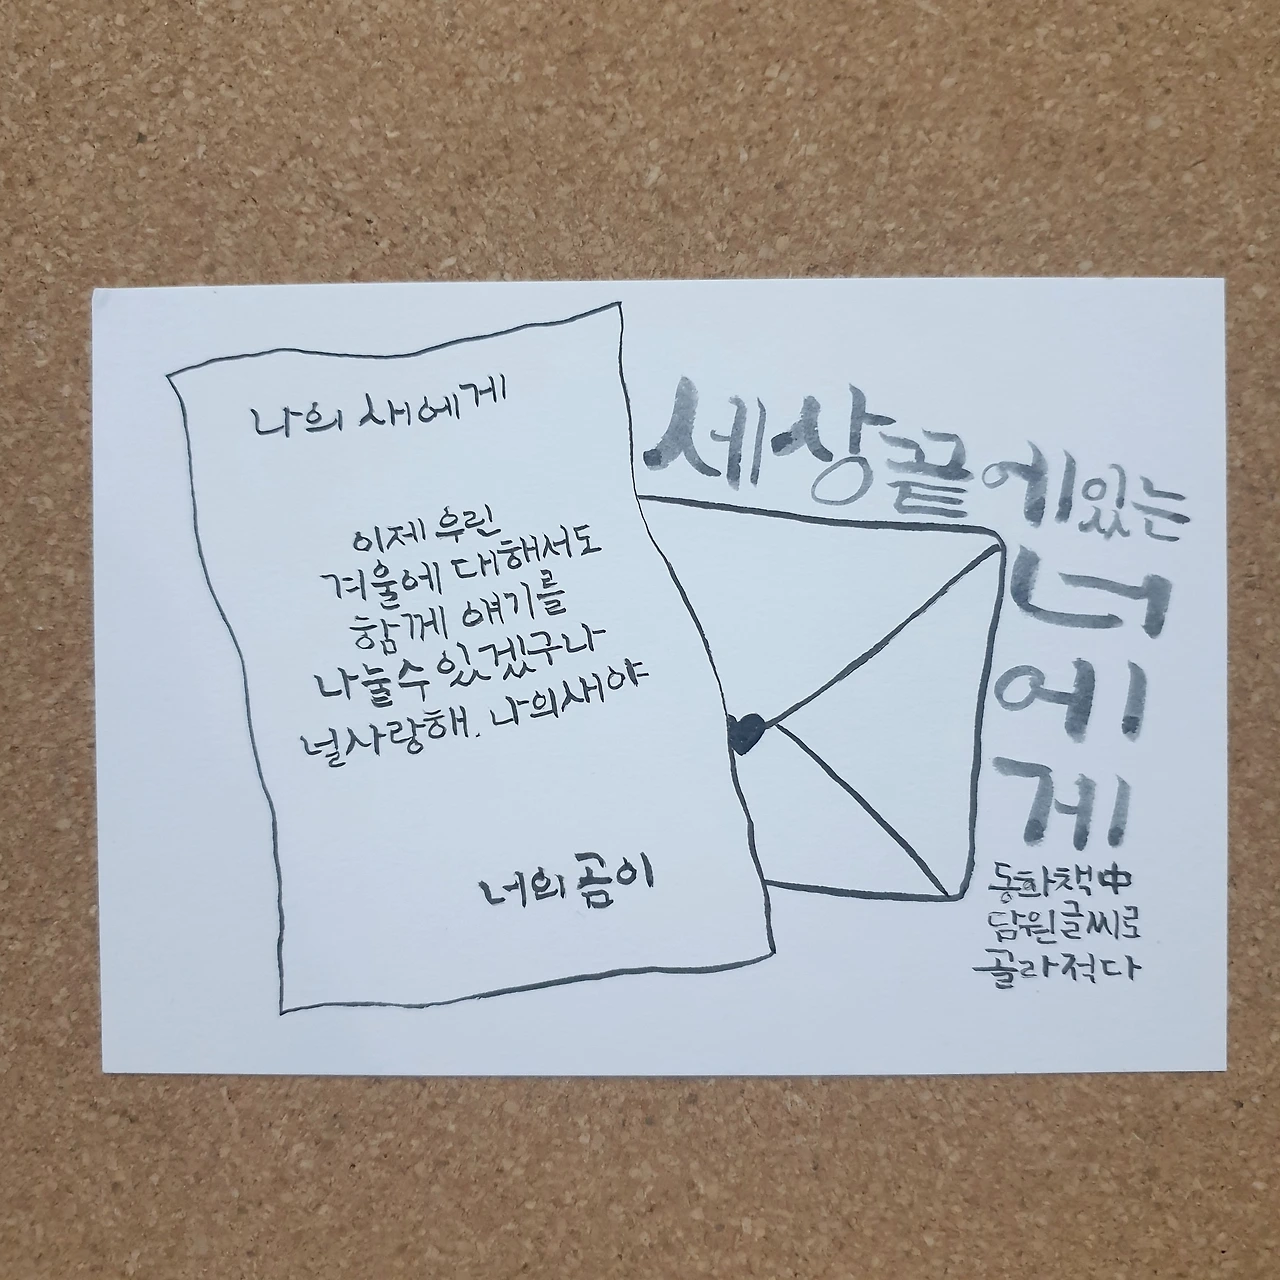 나의 새에게
이제 우린
겨울에 대해서도
함께 얘기를
나눌수 있겠구나
널사랑해. 나의새야
너의 곰이
세상끝에있는
너
에
게
동화책中
담원글씨로
골라적다